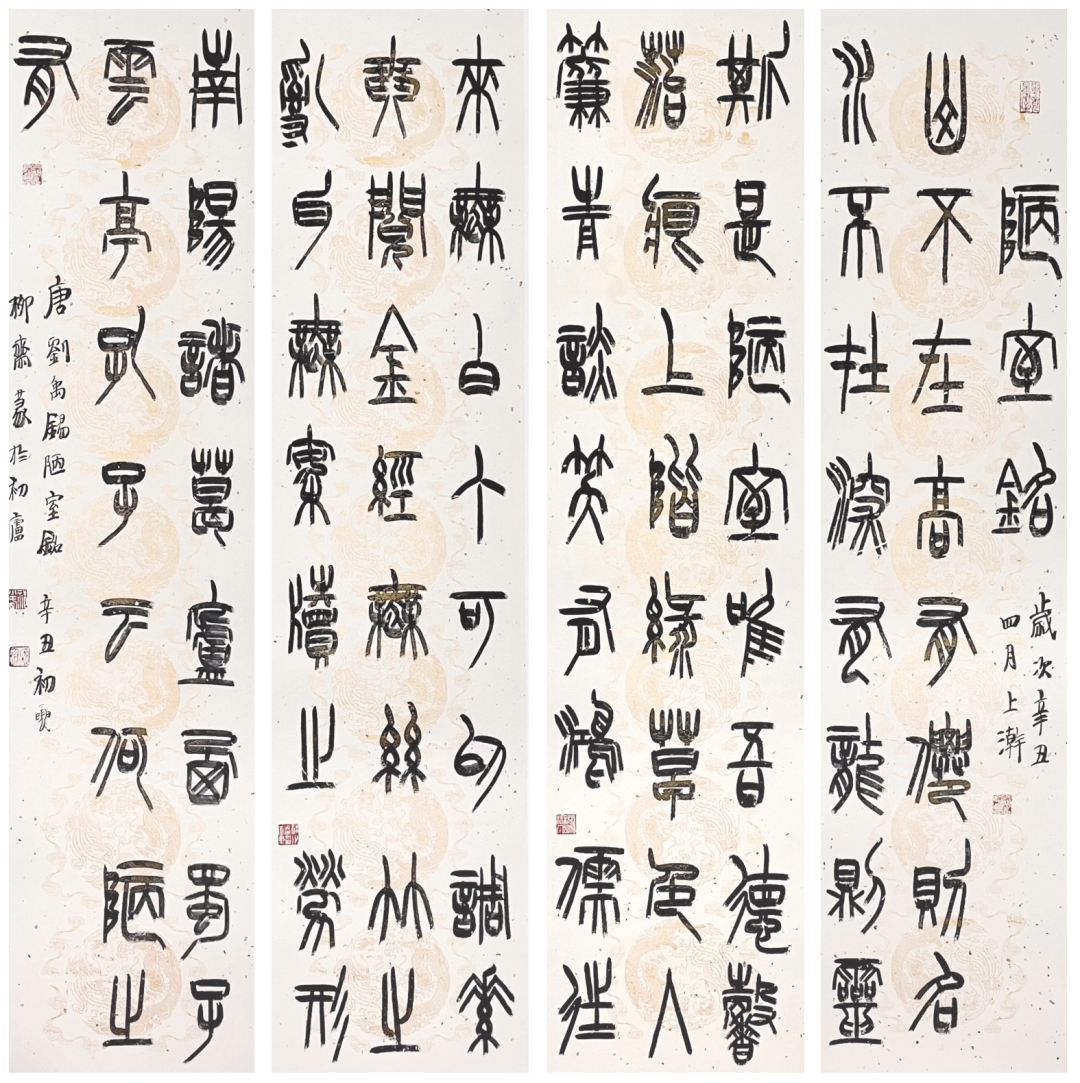 陋室銘
歲次辛丑
四月上澣
山不在高有僊則名
水不在深有龍則靈
斯是陋室唯吾德馨
菭痕上階綠草色入
簾青談笑有鴻儒往
來無白丁可以調素
琴閱金經無絲竹之
亂耳無案牘之勞形
南陽諸葛廬西蜀子
雲亭孔子云何陋之
有
唐劉禹錫陋室銘 辛丑初夏
柳齋篆於初廬